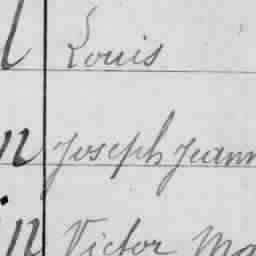 l Louis
n Joseph Jeann
in Victor Ma